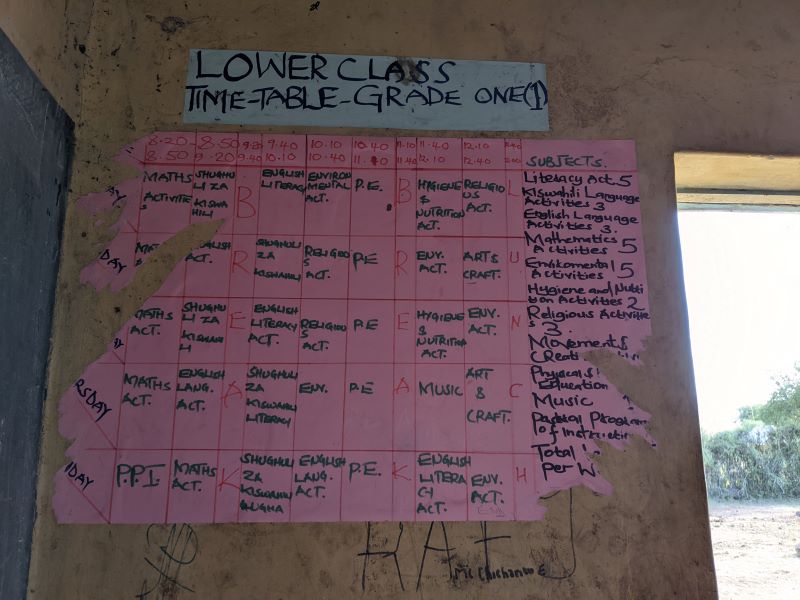 LOWER CLASS
TIME-TABLE-GRADE ONE(1)
8.20- 8.50 9.20 9.40 10.10 10.40 11.10 11.40 12.10
8.50 9.20 9.40 10.10 10.40 11.10 11.40 12.10 12.40
MATHS ACTIVITIES
SHUGHULI ZA KISWAHILI
B
ENGLISH LITERACY
ENVIRONMENTAL ACT.
P.E.
B
HYGIENE & NUTRITION ACT.
RELIGIOUS ACT.
L
DAY
ACT.
SHUGHULI ZA KISWAHILI
RELIGIOUS
P.E
ENV. ACT.
ART & CRAFT.
R
R
U
MATHS ACT.
SHUGHULI ZA KISWAHILI
E
ENGLISH LITERACY ACT.
RELIGIOUS
P.E
E
HYGIENE & NUTRITION ACT.
ENV. ACT.
N
RSDAY
MATHS ACT.
ENGLISH LANG. ACT.
A
SHUGHULI ZA KISWAHILI LITERACY
ENV.
P.E
A
MUSIC
ART & CRAFT.
C
IDAY
P.P.I.
MATHS ACT.
K
SHUGHULI ZA KISWAHILI LUGHA
ENGLISH LANG. ACT.
P.E.
K
ENGLISH LITERACH ACT.
ENV. ACT.
H
SUBJECTS.
Literacy Act. 5
Kiswahili Language
Activities 3
English Language
Activities 3.
Mathematics
Activities 5
Enviromental
Activities 5
Hygiene and Nutri
tion Activities 2
Religious Activitie
s 3.
Movement &
Creati
Physical &
Education
Music
Pastoral Program
of instructi
Total
per W